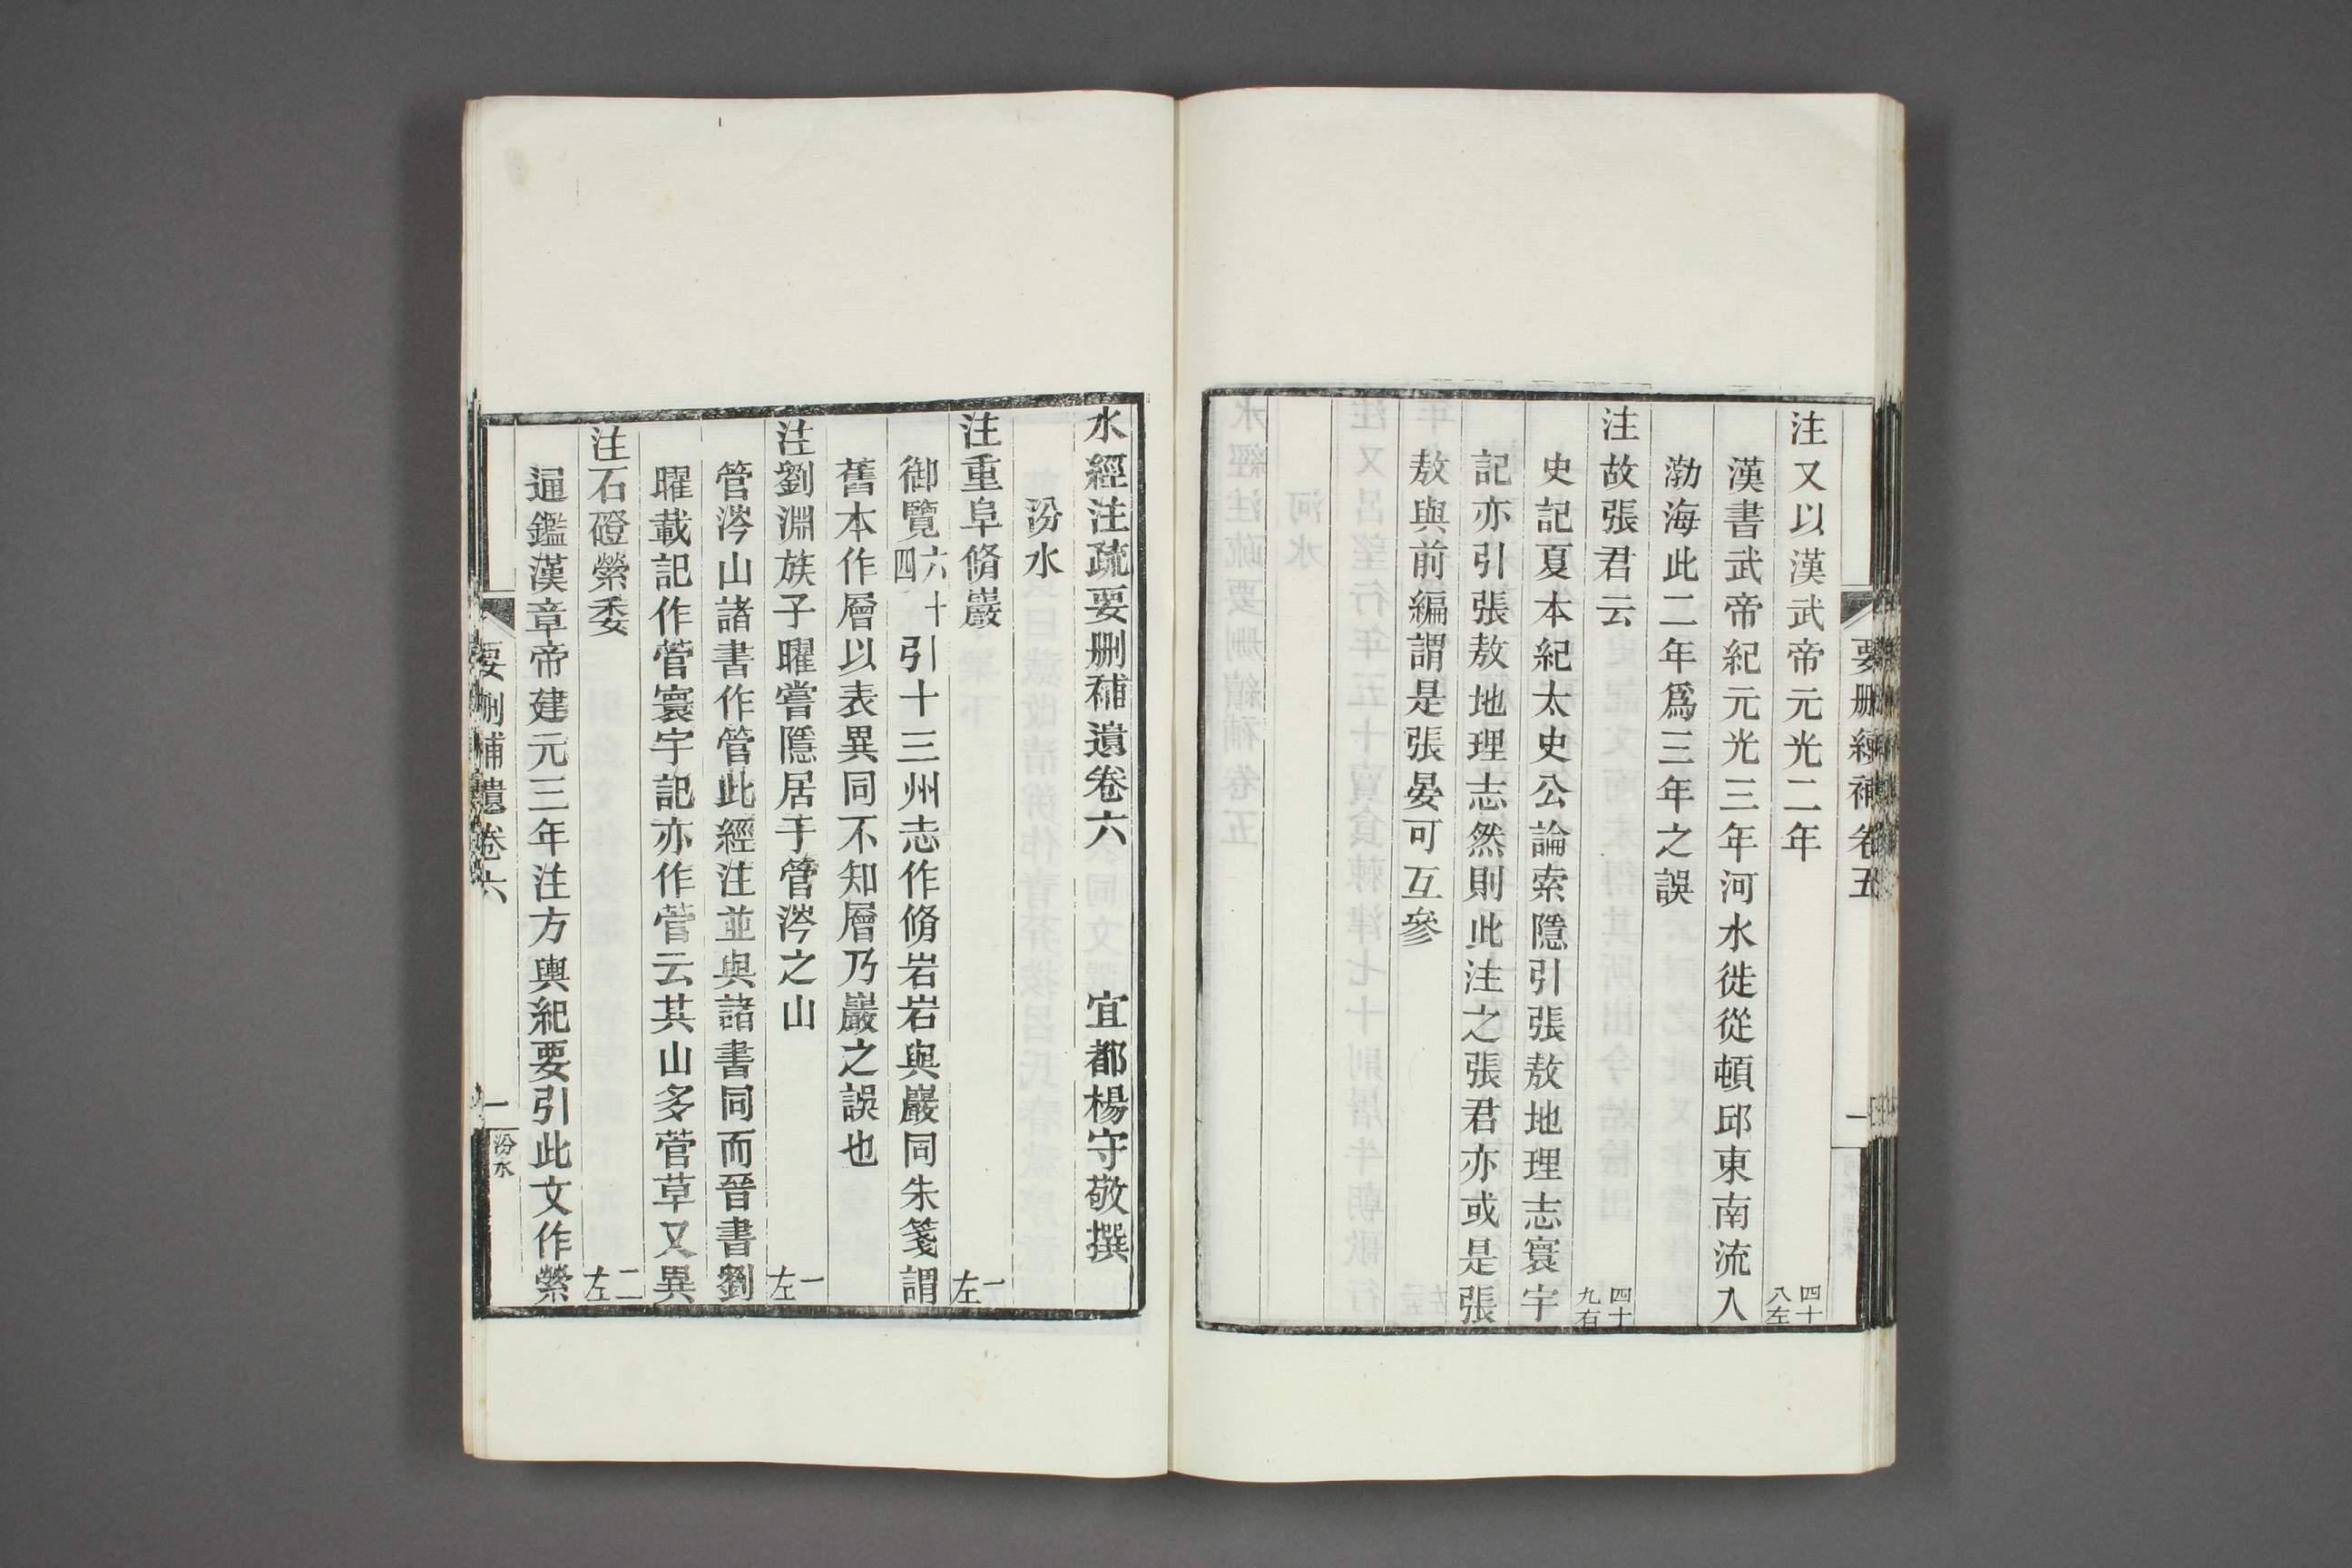 要刪續補卷五
一
注又以漢武帝元光二年 四十八左
漢書武帝紀元光三年河水徙從頓邱東南流入
渤海此二年爲三年之誤
注故張君云 四十九右
史記夏本紀太史公論索隱引張敖地理志寰宇
記亦引張敖地理志然則此注之張君亦或是張
敖與前編謂是張晏可互參
水經注疏要刪補遺卷六 宜都楊守敬撰
汾水
注重阜脩巖 一左
御覽六十四引十三州志作脩岩岩與巖同朱箋謂
舊本作層以表異同不知層乃巖之誤也
注劉淵族子曜嘗隱居于管涔之山 一左
管涔山諸書作管此經注並與諸書同而晉書劉
曜載記作菅寰宇記亦作菅云其山多菅草又異
注石磴縈委 二左
通鑑漢章帝建元三年注方輿紀要引此文作縈
要刪補遺卷六
一
汾水